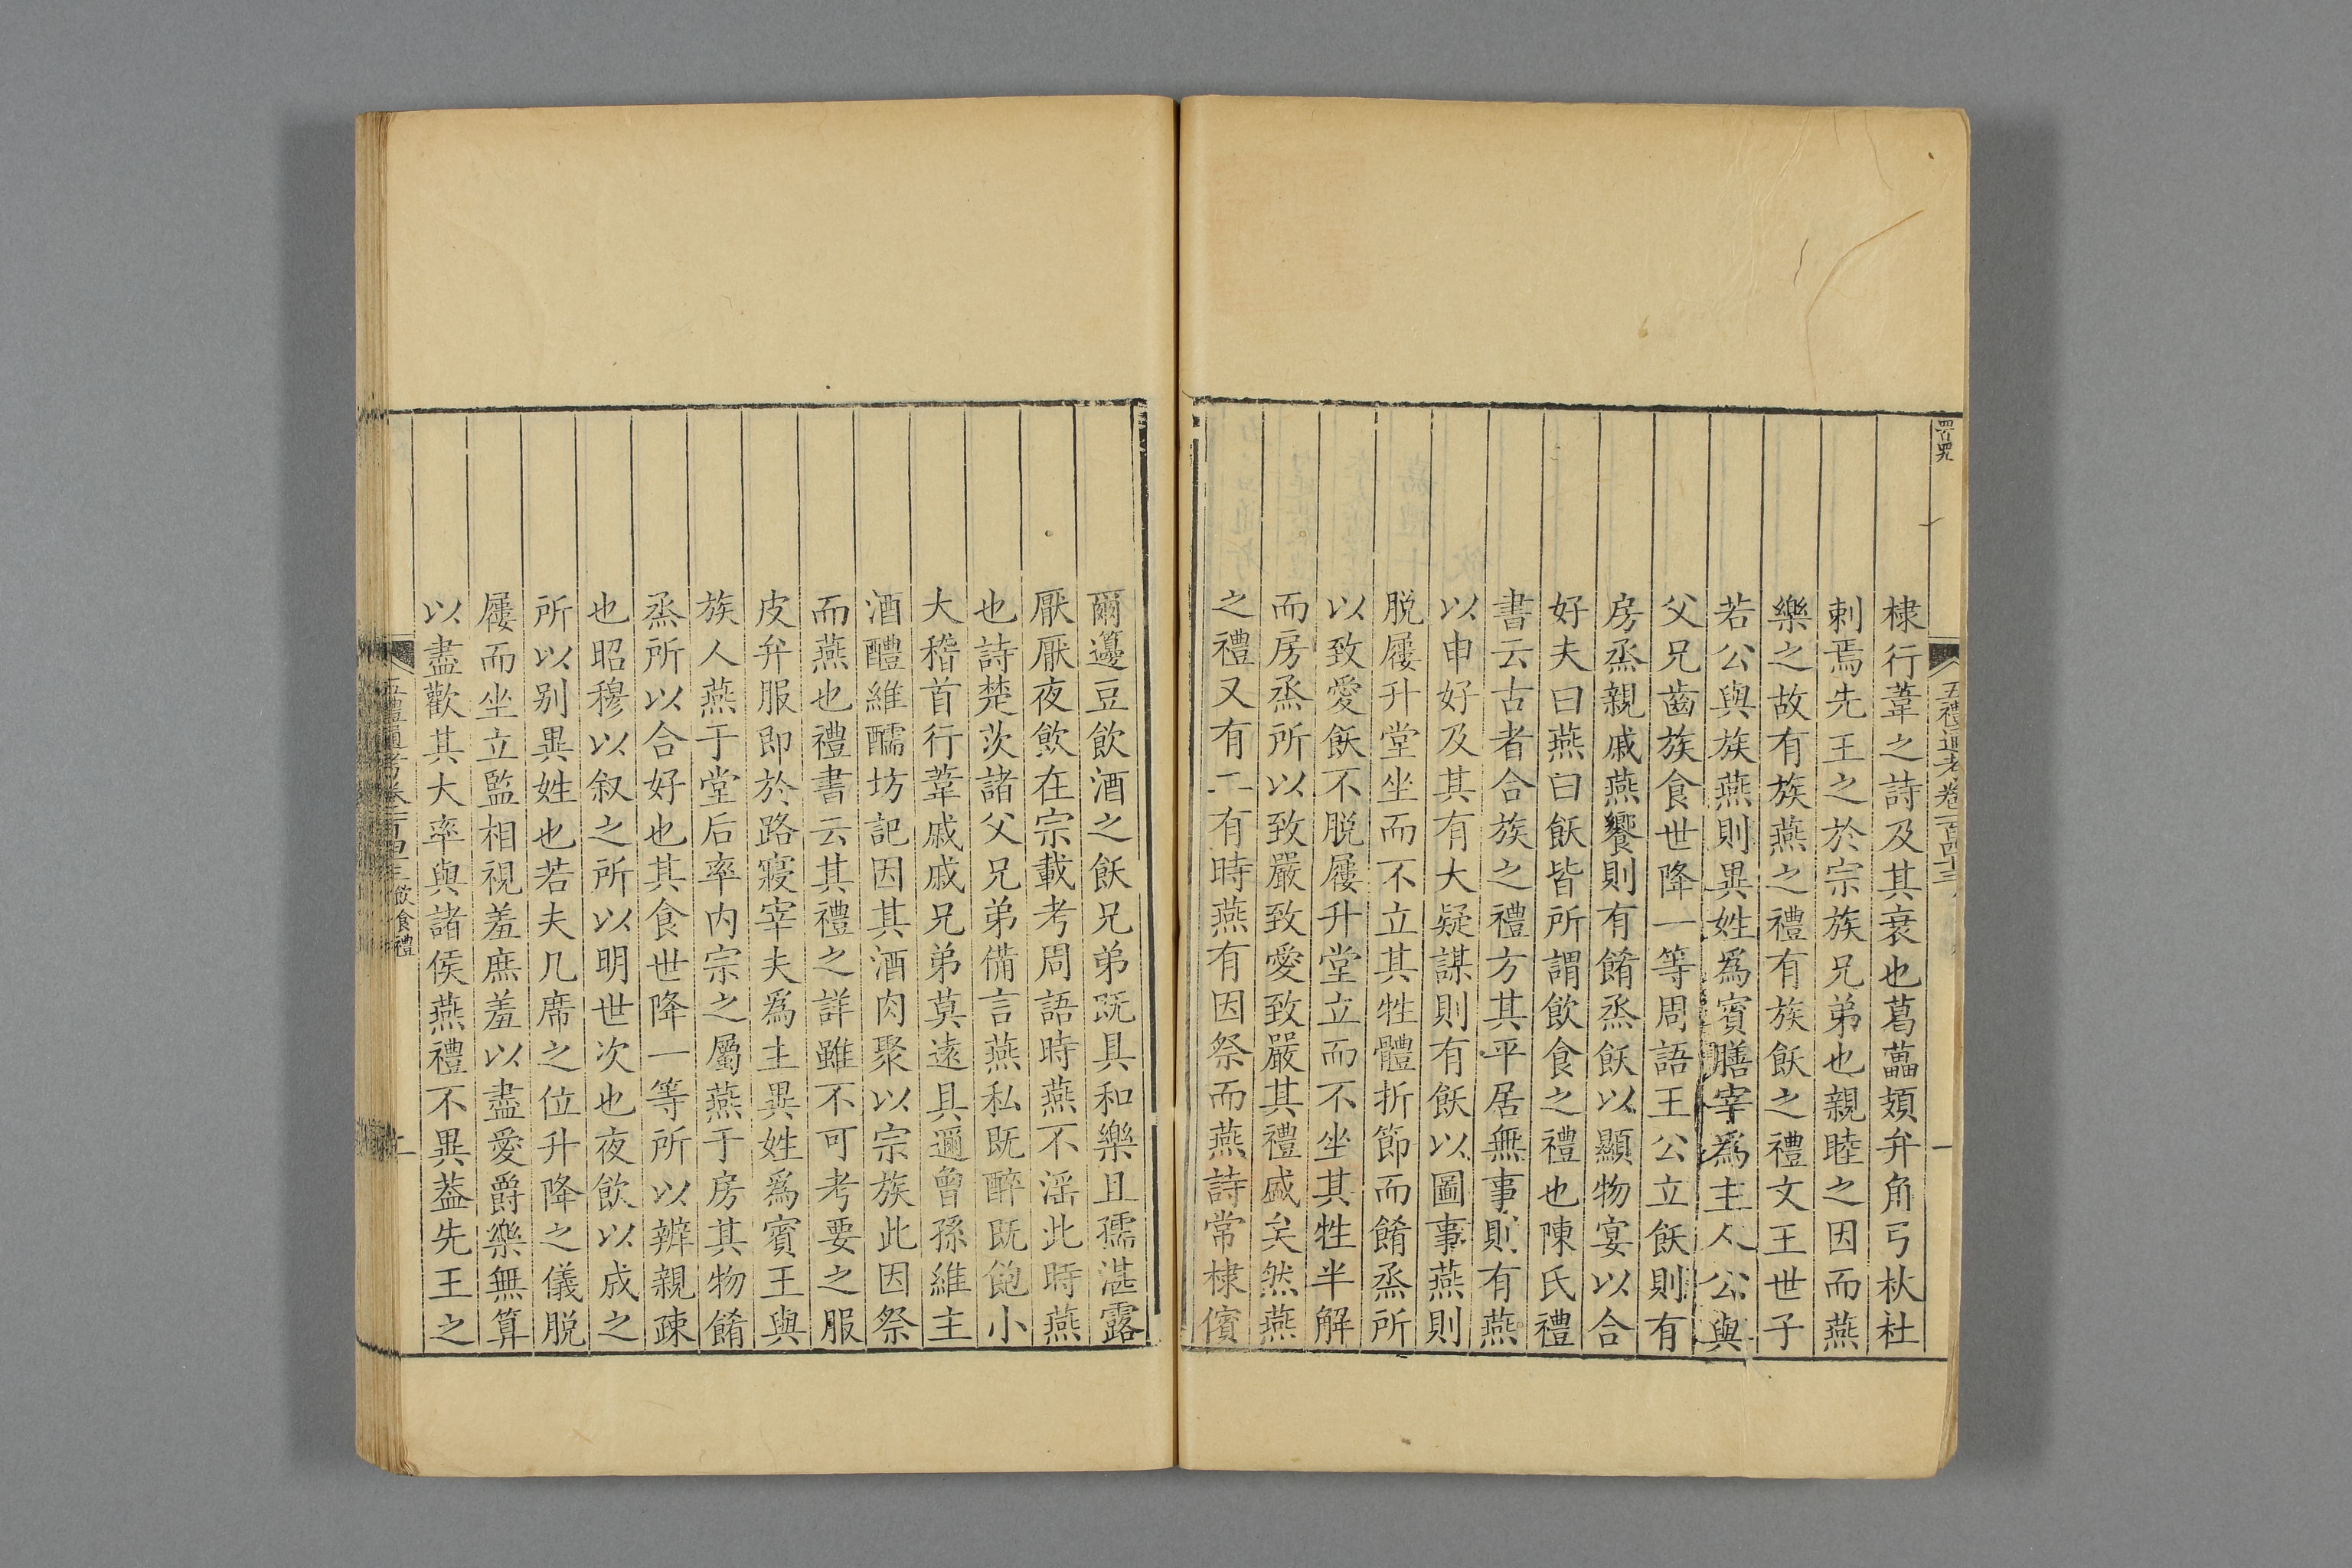 五禮通考卷一百四十三
一
棣行葦之詩及其衰也葛藟頍弁角弓杕杜
刺焉先王之於宗族兄弟也親睦之因而燕
樂之故有族燕之禮有族飫之禮文王世子
若公與族燕則異姓爲賓膳宰爲主人公與
父兄齒族食世降一等周語王公立飫則有
房烝親戚燕饗則有餚烝飫以顯物宴以合
好夫曰燕曰飫皆所謂飲食之禮也陳氏禮
書云古者合族之禮方其平居無事則有燕
以申好及其有大疑謀則有飫以圖事燕則
脱屨升堂坐而不立其牲體折節而餚烝所
以致愛飫不脱屨升堂立而不坐其牲半解
而房烝所以致嚴致愛致嚴其禮咸矣然燕
之禮又有二有時燕有因祭而燕詩常棣儐
爾籩豆飲酒之飫兄弟既具和樂且孺湛露
厭厭夜飲在宗載考周語時燕不淫此時燕
也詩楚茨諸父兄弟備言燕私既醉既飽小
大稽首行葦戚戚兄弟莫遠具邇曾孫維主
酒醴維醹坊記因其酒肉聚以宗族此因祭
而燕也禮書云其禮之詳雖不可考要之服
皮弁服即於路寢宰夫爲主異姓爲賓王與
族人燕于堂后率内宗之屬燕于房其物餚
烝所以合好也其食世降一等所以辨親疎
也昭穆以叙之所以明世次也夜飲以成之
所以别異姓也若夫几席之位升降之儀脱
屨而坐立監相視羞庶羞以盡愛爵樂無算
以盡歡其大率與諸侯燕禮不異葢先王之
五禮通考卷一百四十三 飲食禮